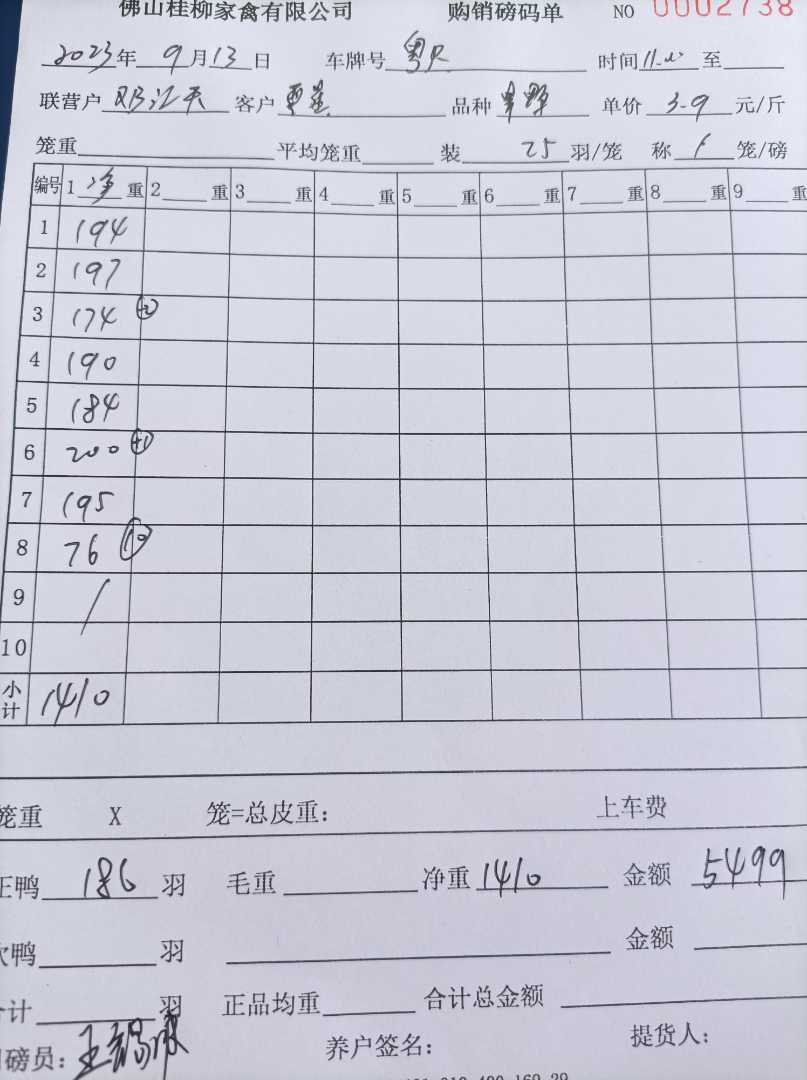 佛山桂柳家禽有限公司 购销磅码单 NO 0002738
2023年 9月13日 车牌号 粤 时间 11 至
联营户 邓江 客户 品种 单价 3-9 元/斤
笼重 平均笼重 装 25 羽/笼 称 1 笼/磅
编号 1 净 重 2 重 3 重 4 重 5 重 6 重 7 重 8 重 9 重
1 194
2 197
3 174 +2
4 190
5 184
6 200 +1
7 195
8 76 10
9 /
10
小计 1410
笼重 X 笼=总皮重: 上车费
正鸭 186 羽 毛重 净重 1410 金额 5499
次鸭 羽 金额
合计 羽 正品均重 合计总金额
司磅员: 王锡 养户签名: 提货人: